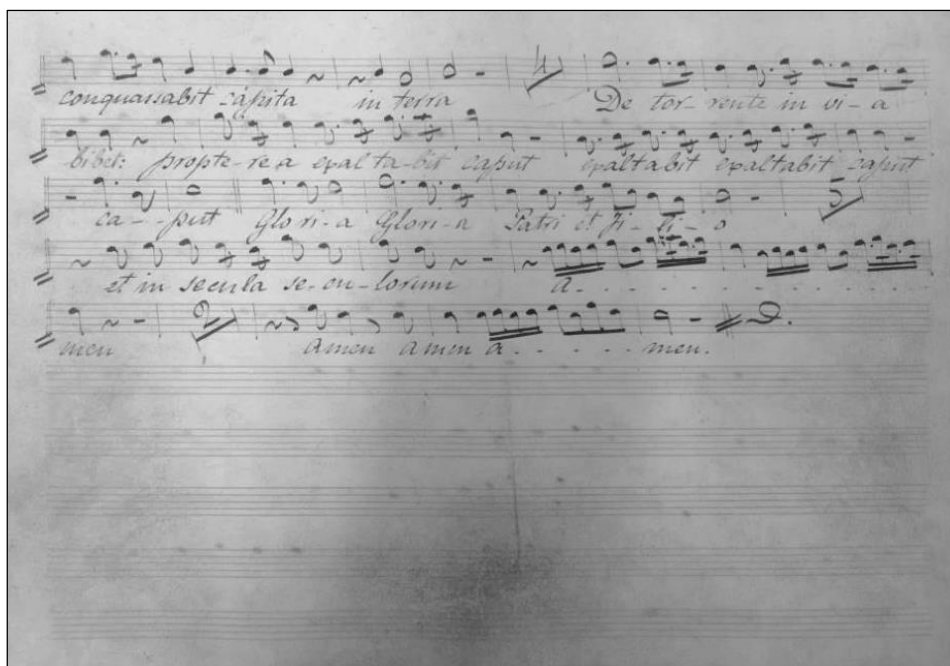 conquassabit capita in terra De tor- rente in vi-a
bibet: propte-rea exalta-bit caput exaltabit exaltabit caput
ca--put Glori-a Glori-a Patri et Fi-li-o
et in secula se-cu-lorum a.........
men amen amen a..... men.